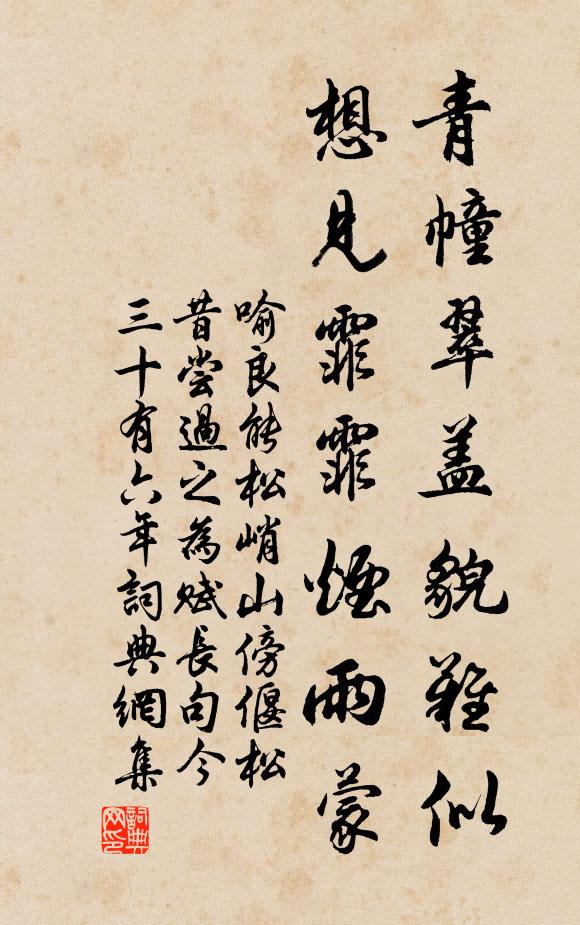 青幢翠盖貌難似
想見霏霏煙雨蒙
喻良能松峭山傍偃松
昔嘗過之為賦長句今
三十有六年詞典網集
詞典
网印